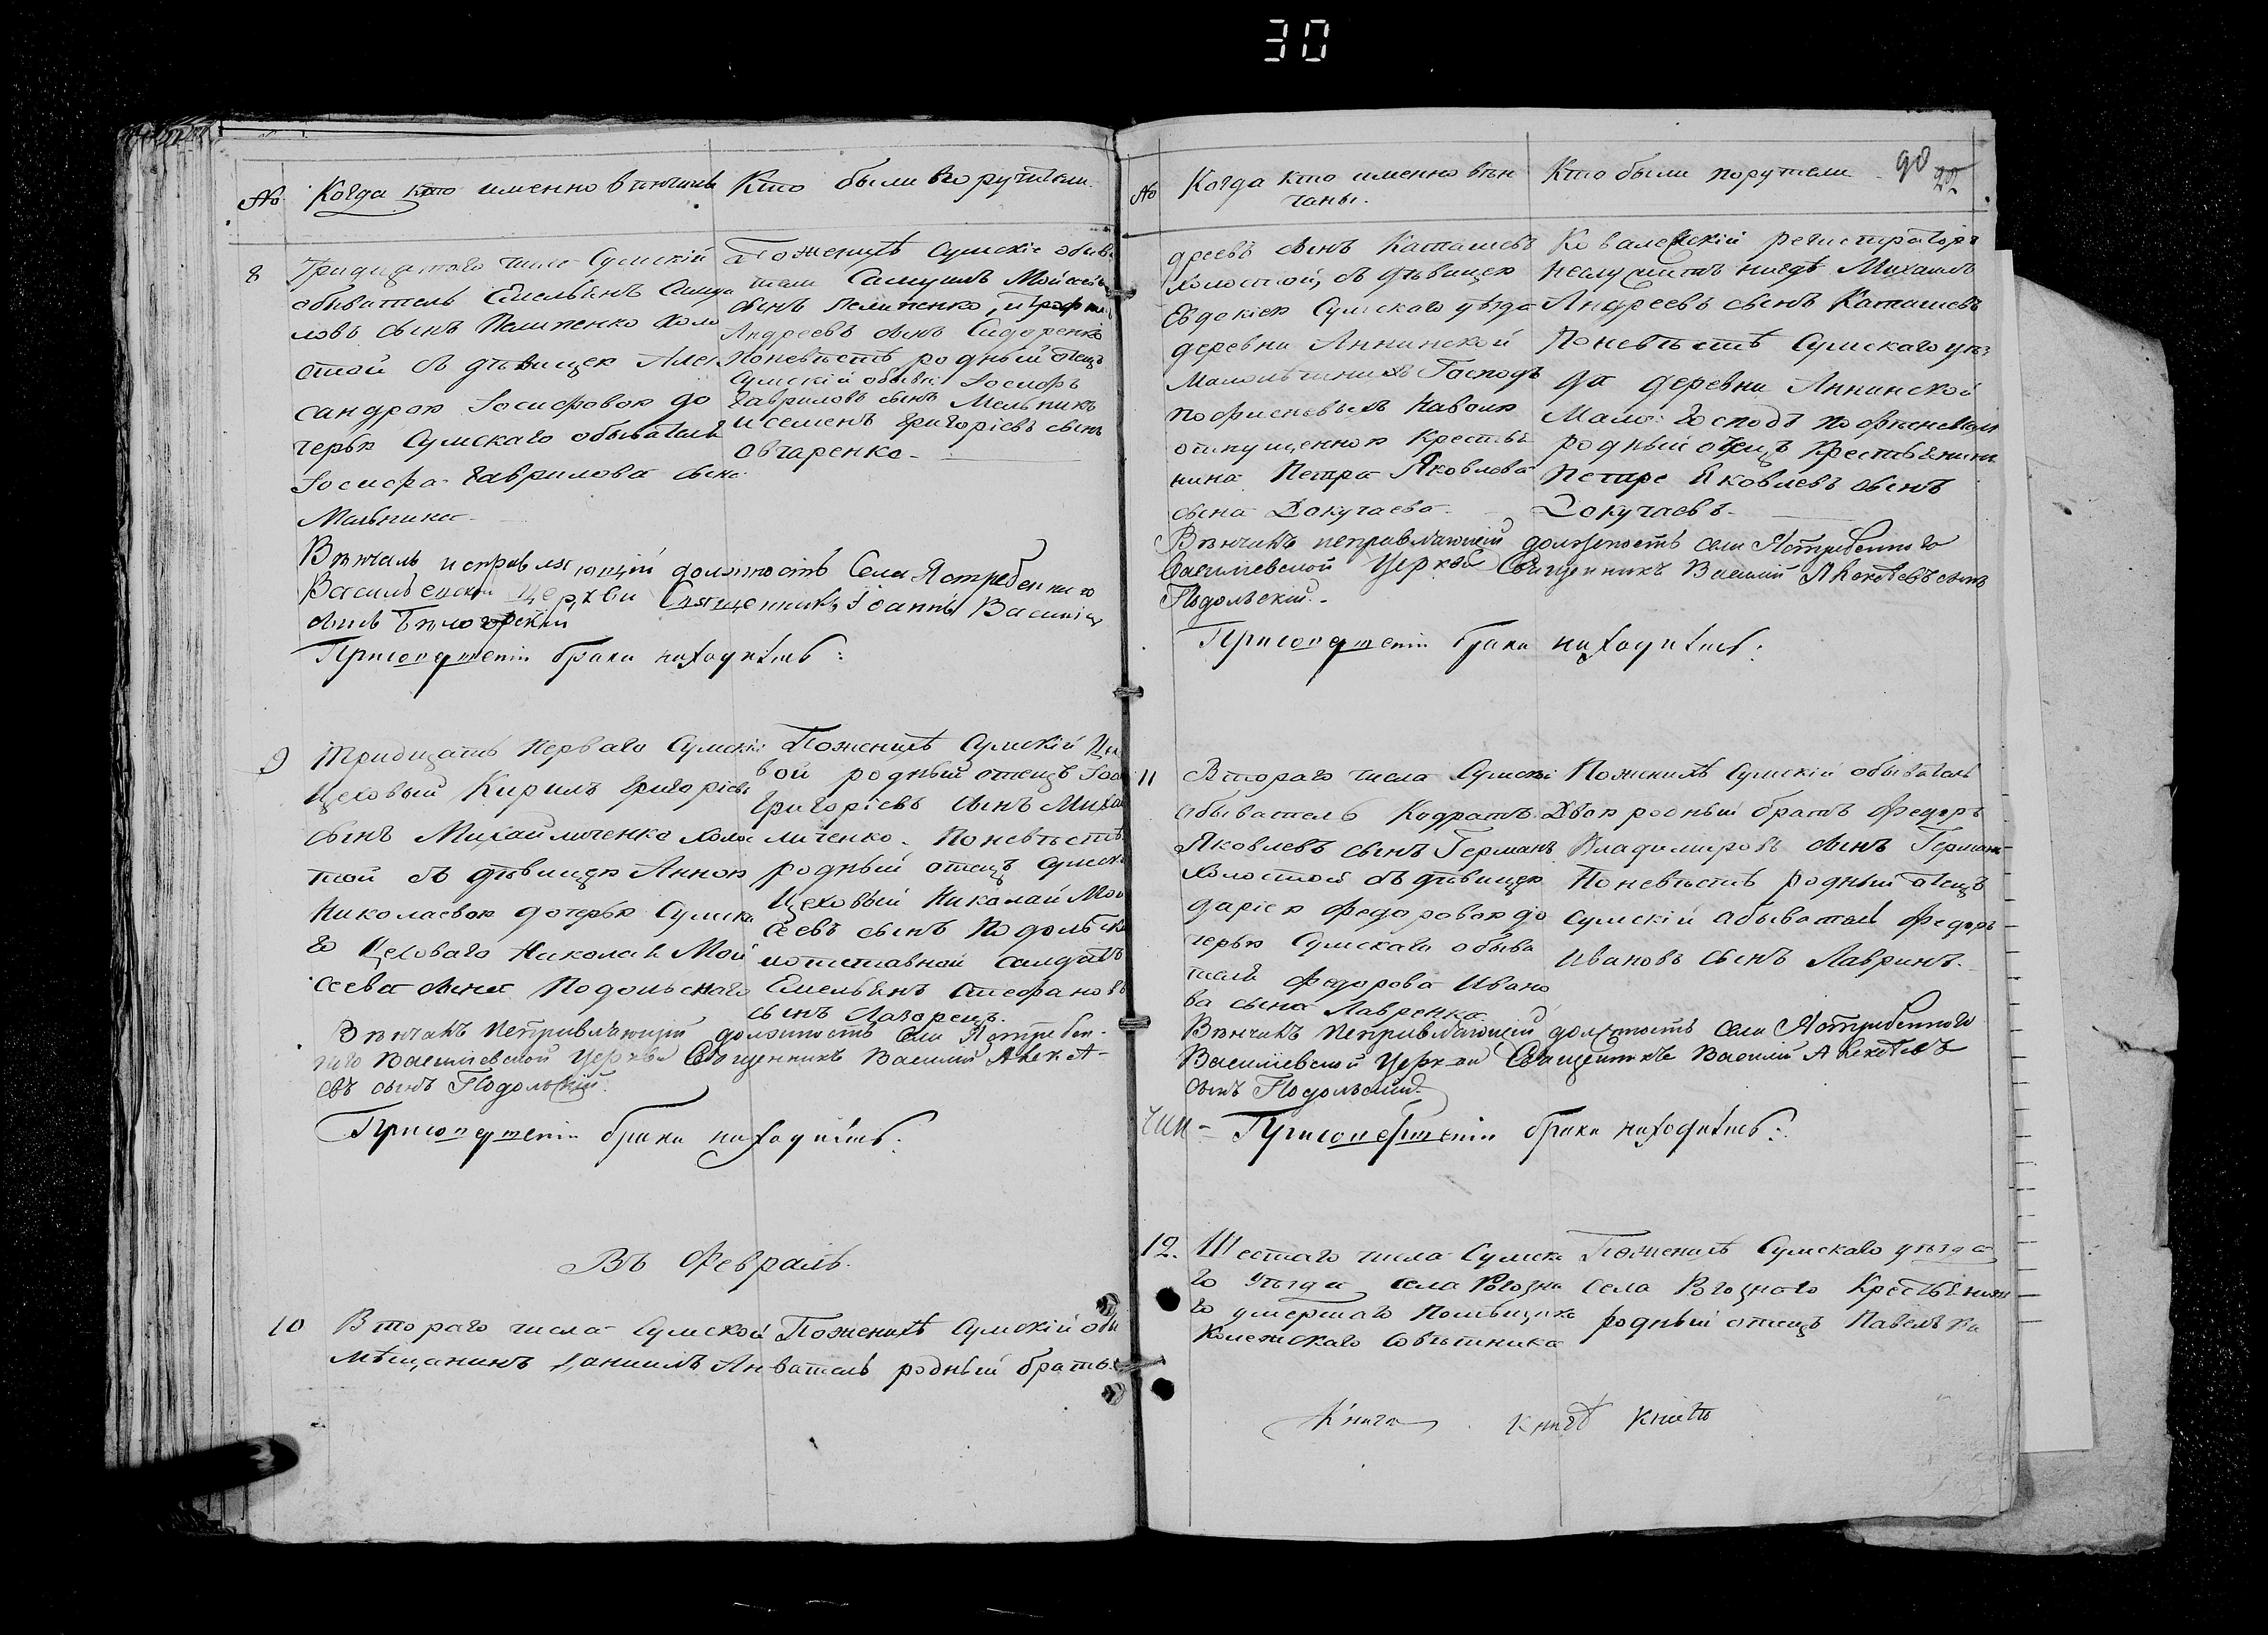 30
№ Когда кто именно венчаны
Кто были поручители
8
Тридцятого числа Сумскій
обыватель Емельянъ Самуи
ловъ сынъ Пелипенко холо
стой съ дѣвицею Алек
сандрою Іосифовою до
черью Сумскаго обывателя
Іосифа Гаврилова сына
Мельника
Поженихѣ Сумскіе обыва
тели Самуилъ Мойсеевъ
сынъ Пелипенко, и Трофимъ
Андреевъ сынъ Сидоренко
Поневѣстѣ родный отецъ
Сумскій обыват Іосифъ
Гавриловъ сынъ Мельникъ
и Семенъ Григоріевъ сынъ
Овчаренко
Вѣнчалъ исправляющій должность Села Ястребеннаго
Васильевской Церкви Священникъ Іоаннъ Васильевъ
сынъ Бѣлогорскій
При совершеніи брака находились:
9
Тридцать перваго Сумскій
Цеховый Кирилъ Григоріевъ
сынъ Михайличенко холос
той съ дѣвицею Анною
Николаевою дочерью Сумска
го Цеховаго Николая Мой
сеева сына Подольскаго
Поженихѣ Сумскій Цехо
вой родный отецъ
Григоріевъ сынъ Михай
личенко. Поневѣстѣ
родный отецъ Сумскій
Цеховый Николай Мой
сеевъ сынъ Подольскій
и отставной салдатъ
Емельянъ Стефановъ
сынъ Лазорецъ.
Вѣнчалъ исправляющій должность села Ястребен-
наго Василіевской Церкви Священникъ Василій Алексѣ-
евъ сынъ Подольскій.
При совершеніи брака находились:
Въ Февралѣ.
10
Втораго числа Сумской
мѣщанинъ Даниилъ Ан
Поженихѣ Сумскій обы
ватель родный братъ
№ Когда кто именно вѣн
чаны.
Кто были поручители
90
дреевъ сынъ Каташевъ
холостой, съ дѣвицею
Евдокіею Сумскаго уѣзда
деревни Анинской
Малолѣтнихъ Господъ
на волю
отпущенною крестья
нина Петра Яковлева
сына Докучаева
Ковалевскій регистраторъ
неслужитъ нигдѣ Михаилъ
Андреевъ сынъ Каташевъ
Поневѣстѣ Сумскаго уѣз
да деревни Аннинской
Мало: Господъ
родный отецъ Крестьянин
Петръ Яковлевъ сынъ
Докучаевъ
Вѣнчалъ исправляющій должность села Ястребеннаго
Василіевской Церкви Священникъ Василій Алексѣевъ сынъ
Подольскій.
При совершеніи брака находились:
11
Втораго числа Сумскій
обыватель Кодратъ
Яковлевъ сынъ Германъ
холостой съ дѣвицею
Даріею Федоровою до
черью Сумскаго обыва
теля Федорова Ивано
ва сына Лавренка
Поженихѣ Сумскій обыватель
Двоюродный братъ Федоръ
Владимировъ сынъ Герман
Поневѣстѣ родный отецъ
Сумскій абыватель Федоръ
Ивановъ сынъ Лавринъ.
Вѣнчалъ исправляющій должность села Ястребеннаго
Василіевской Церкви Священникъ Василій Алексѣевъ
сынъ Подольскій.
При совершеніи брака находились:
12.
Шестаго числа Сумска
го Уѣзда села Рогозна
го умершаго помѣщика
Колежскаго Совѣтника
Поженихѣ Сумскаго уѣзда
Села Рогознаго Крестьянин
родный отецъ Павелъ
Книга Книгѣ